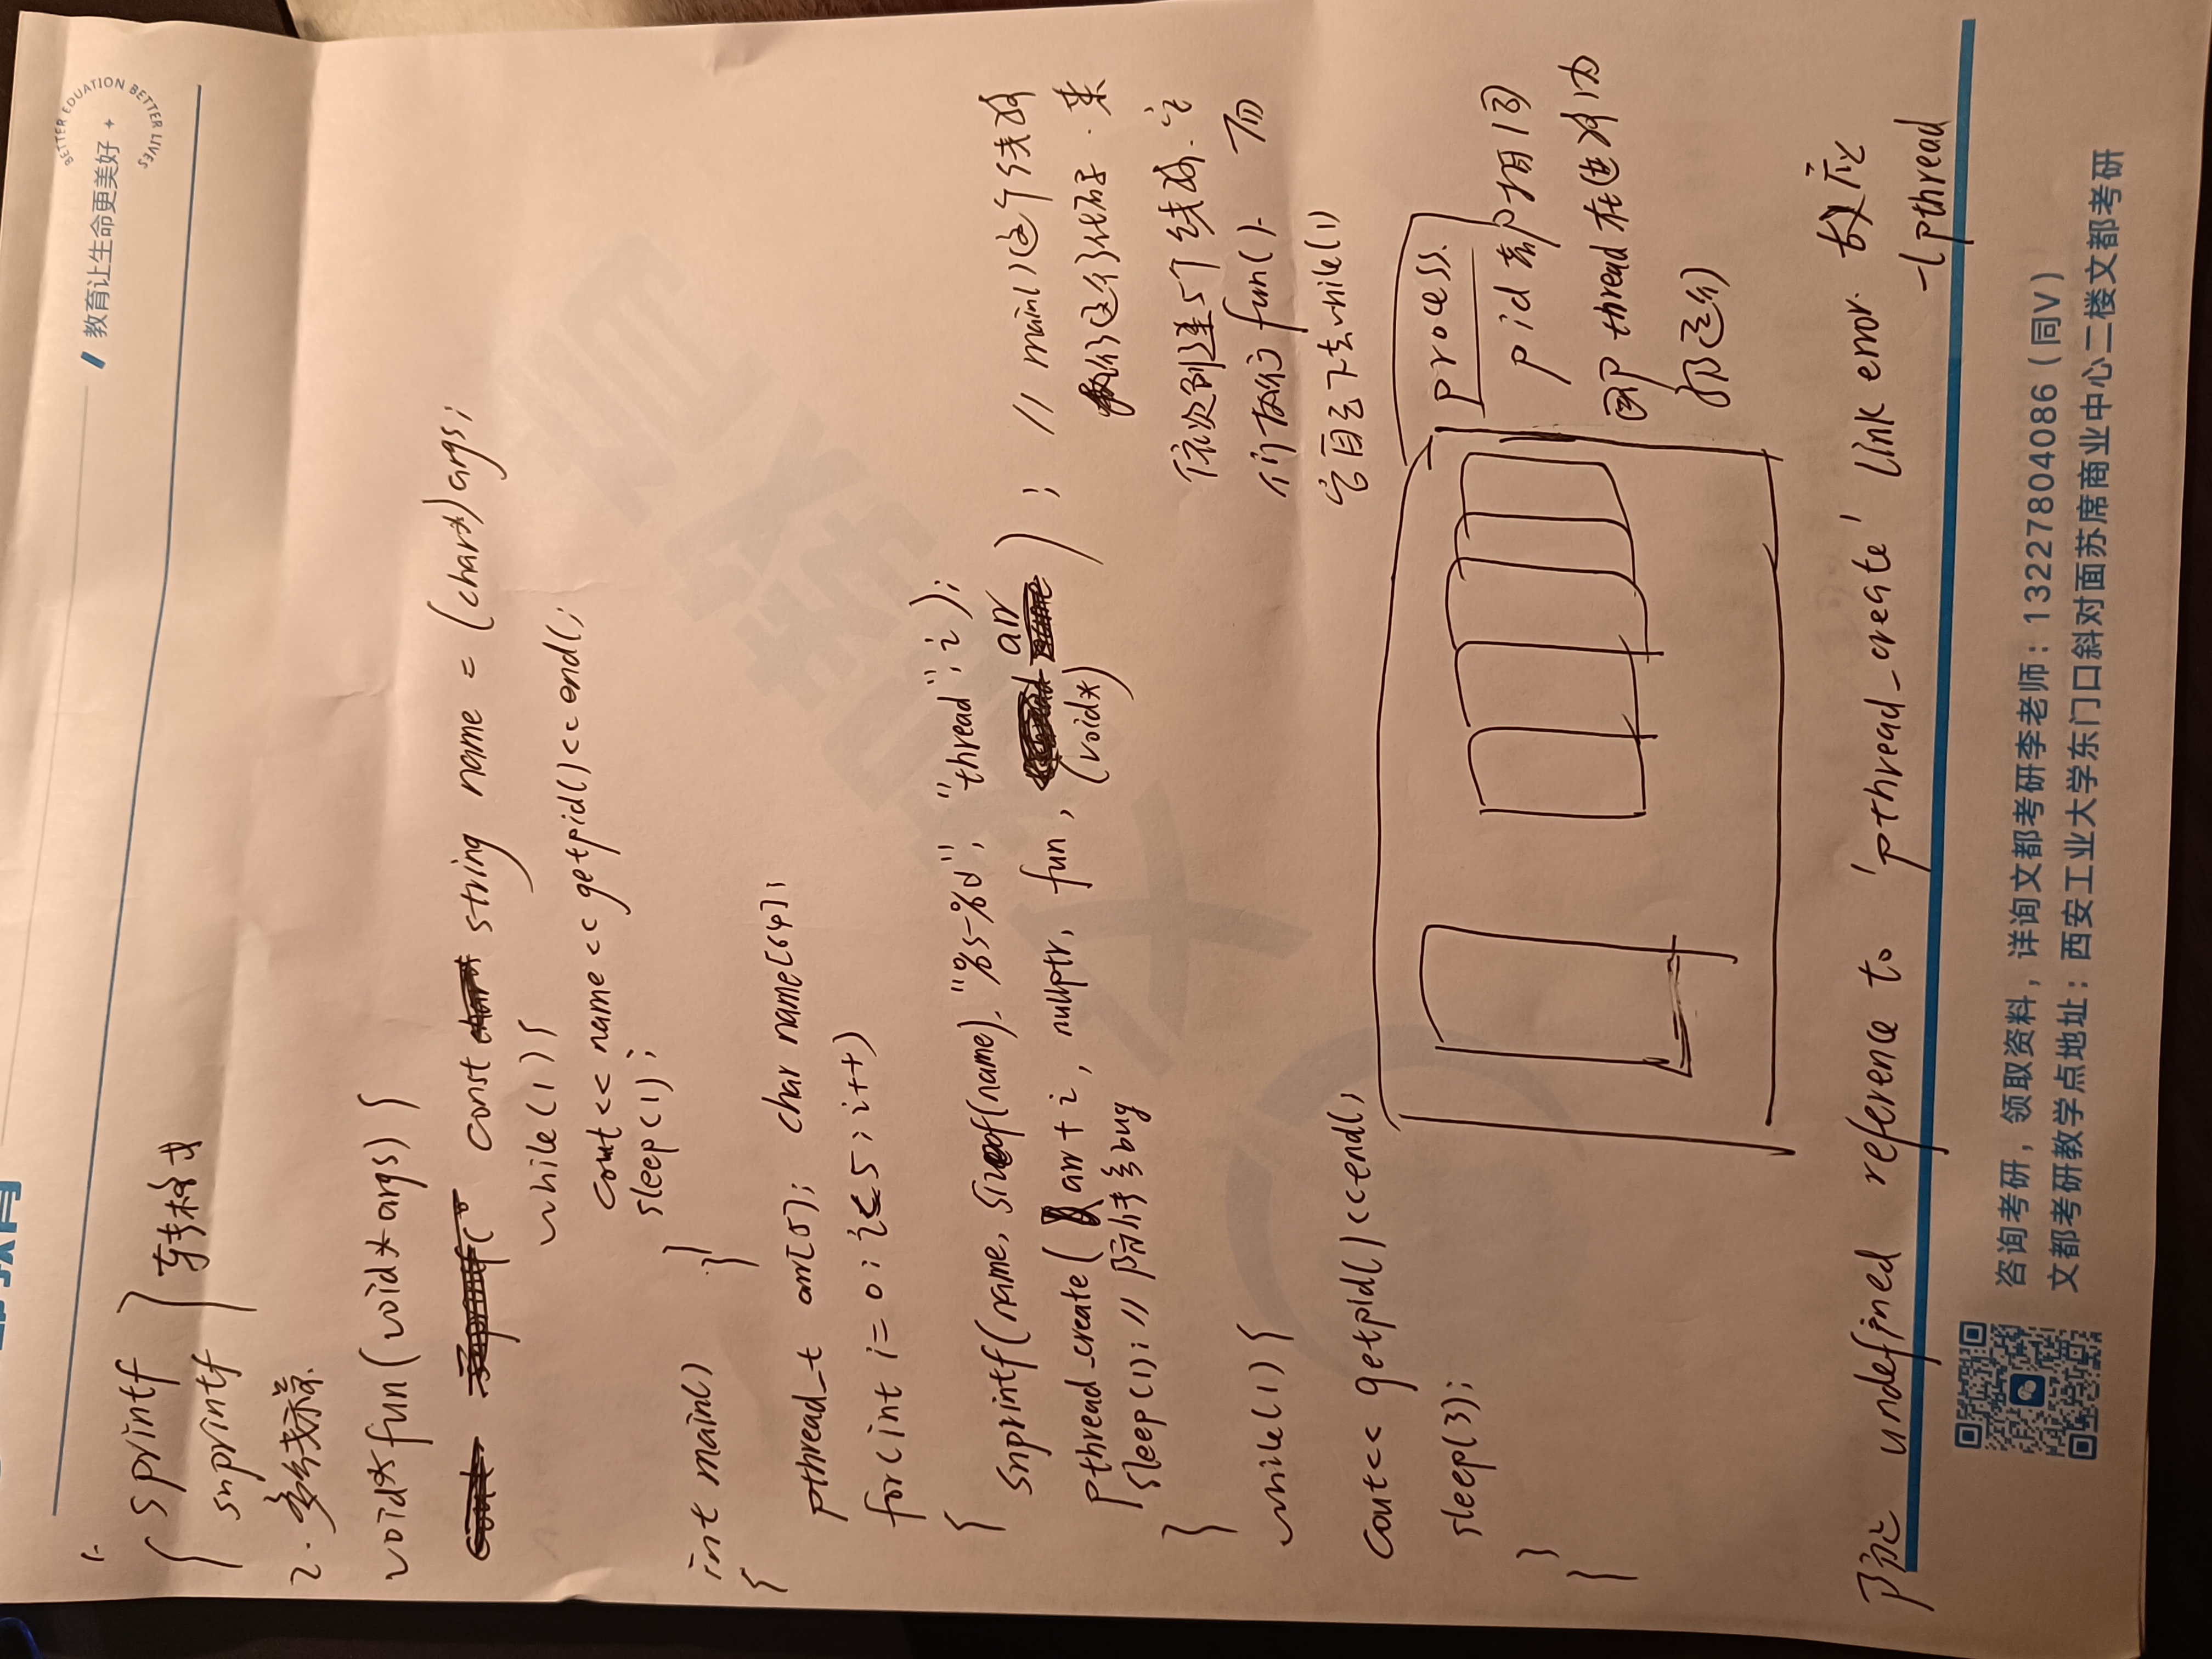 教育让生命更美好
BETTER EDUATION BETTER LIVES
1.
sprintf
snprintf
2. 多线
void* fun(void* args) {
const string name = (char*)args;
while(1){
cout<< name << getpid()<<endl;
sleep(1);
}
}
int main()
{
pthread_t arr[5]; char name[64];
for(int i=0; i<5; i++)
{
snprintf(name, sizeof(name), "%s-%d", "thread", i);
pthread_create( arr+i, nullptr, fun, (void*) arr ); // main()这个线程
执行这行代码. 来
sleep(1); // 防传参bug
依次创建5个线程. 它
们去执行 fun(). 而
}
while(1){
它自己下去while(1)
cout<< getpid()<<endl;
sleep(3);
}
}
process.
pid都相同
即thread在进程内
部运行
undefined reference to 'pthread_create' link error. 故应
-lpthread
咨询考研，领取资料，详询文都考研李老师：13227804086（同V）
文都考研教学点地址：西安工业大学东门口斜对面苏席商业中心二楼文都考研